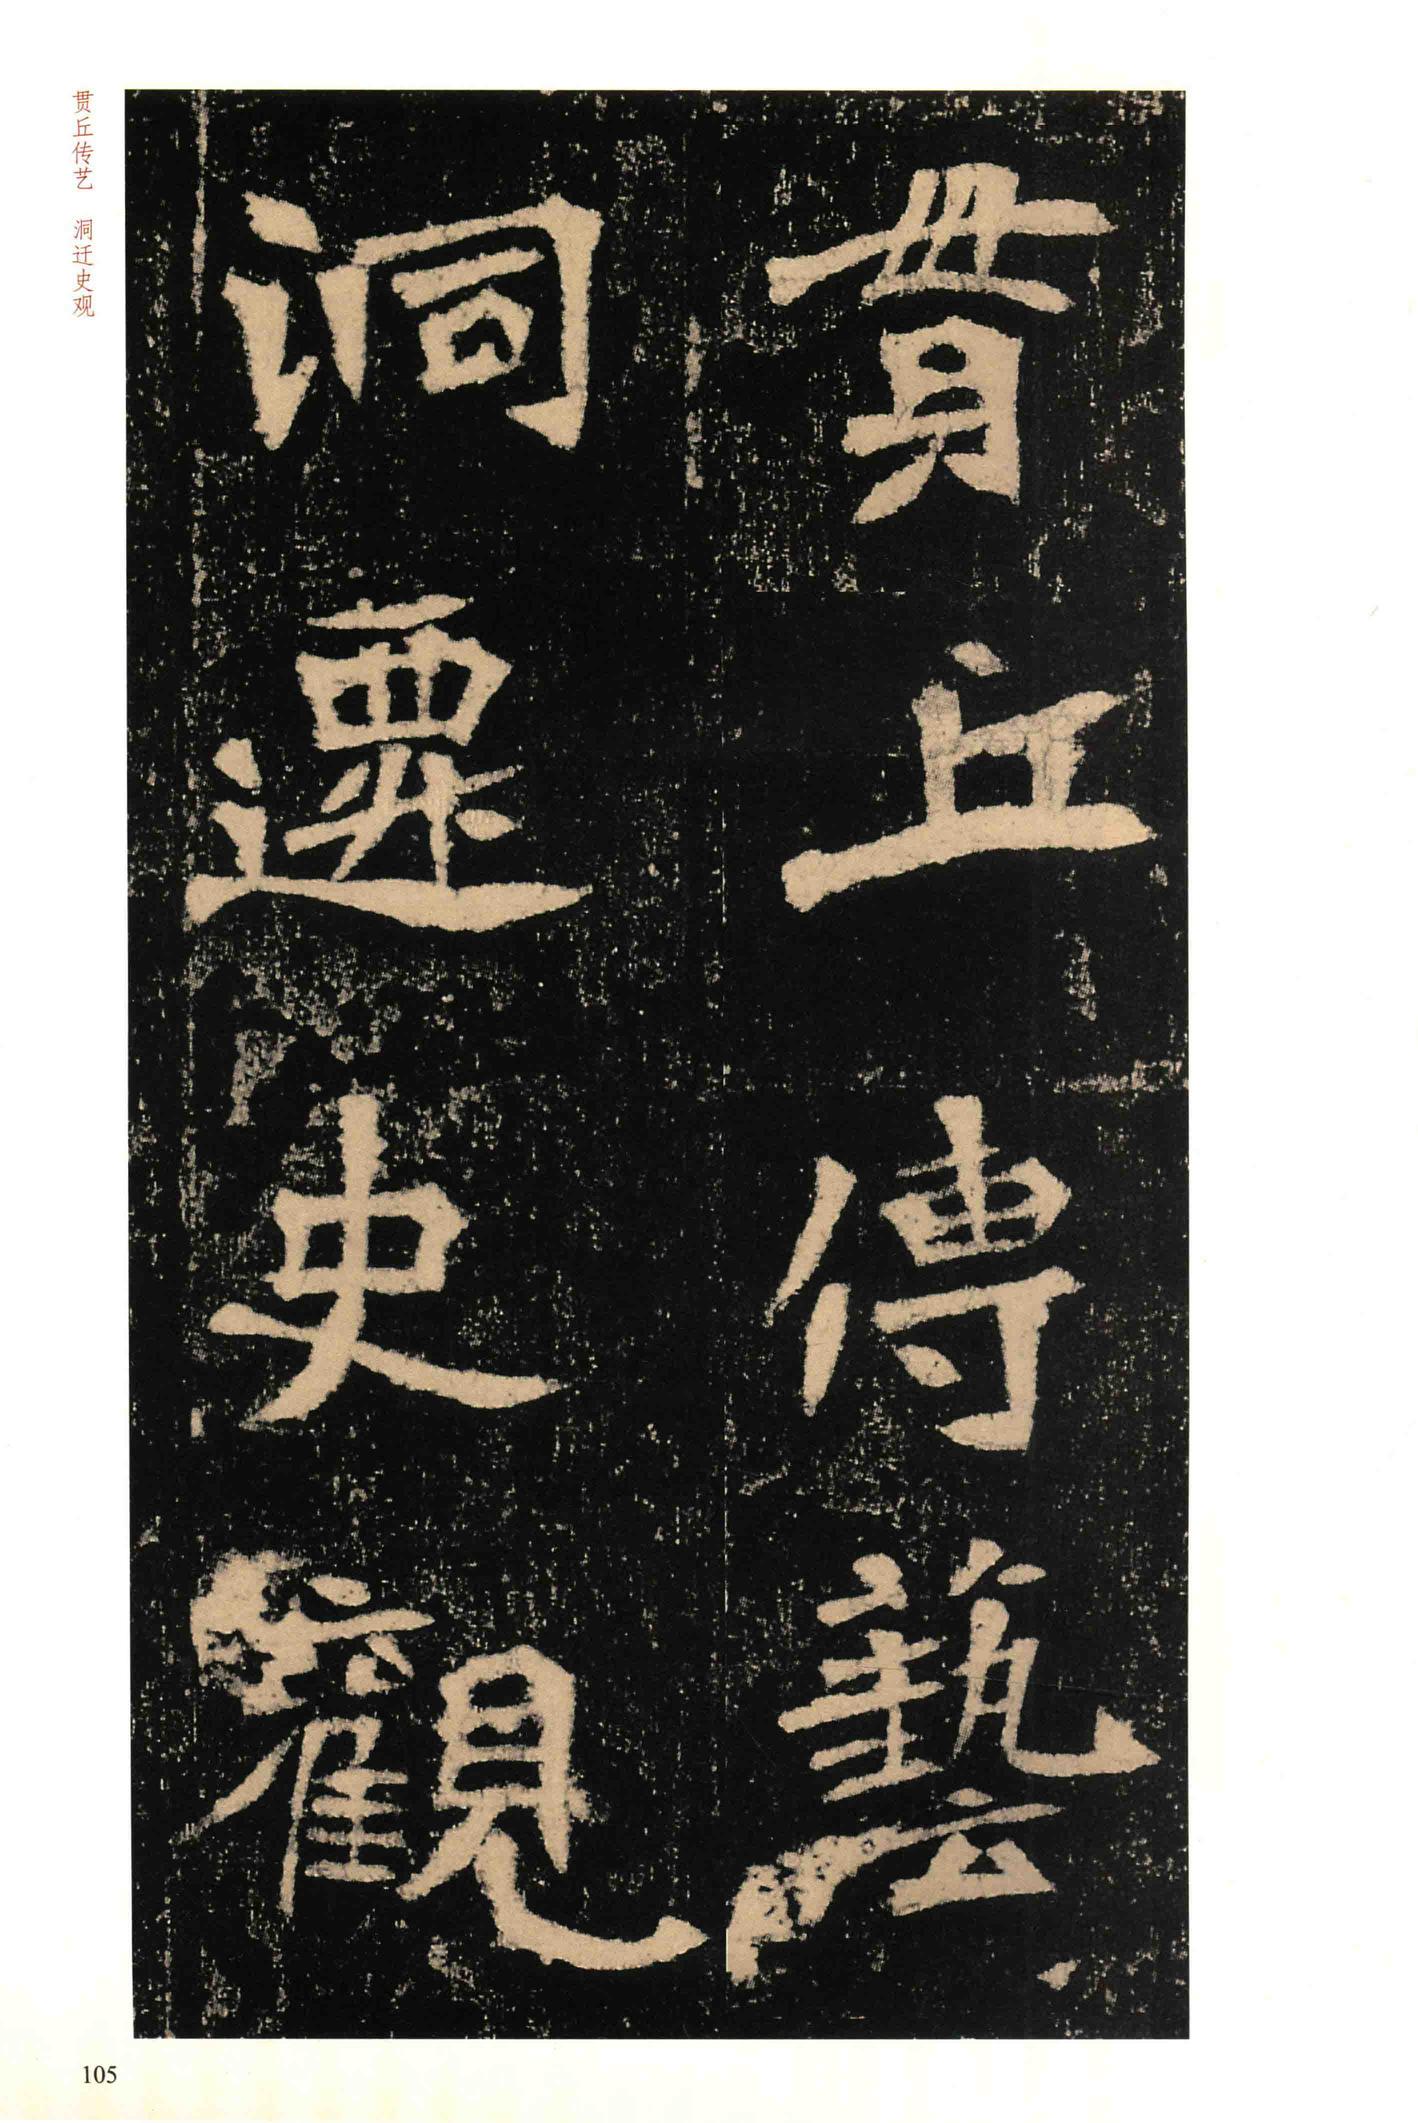 貫丘傳藝
洞遷史觀
贯丘传艺　洞迁史观
105